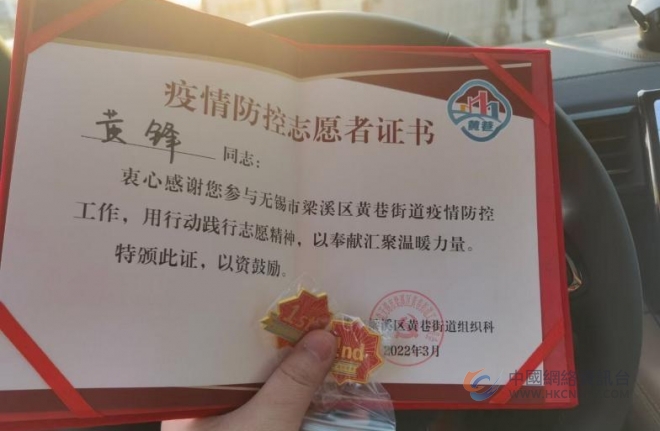 疫情防控志愿者证书
黄巷
黄锋 同志:
衷心感谢您参与无锡市梁溪区黄巷街道疫情防控
工作，用行动践行志愿精神，以奉献汇聚温暖力量。
特颁此证，以资鼓励。
1st
2nd
溪区黄巷街道组织科
2022年3月